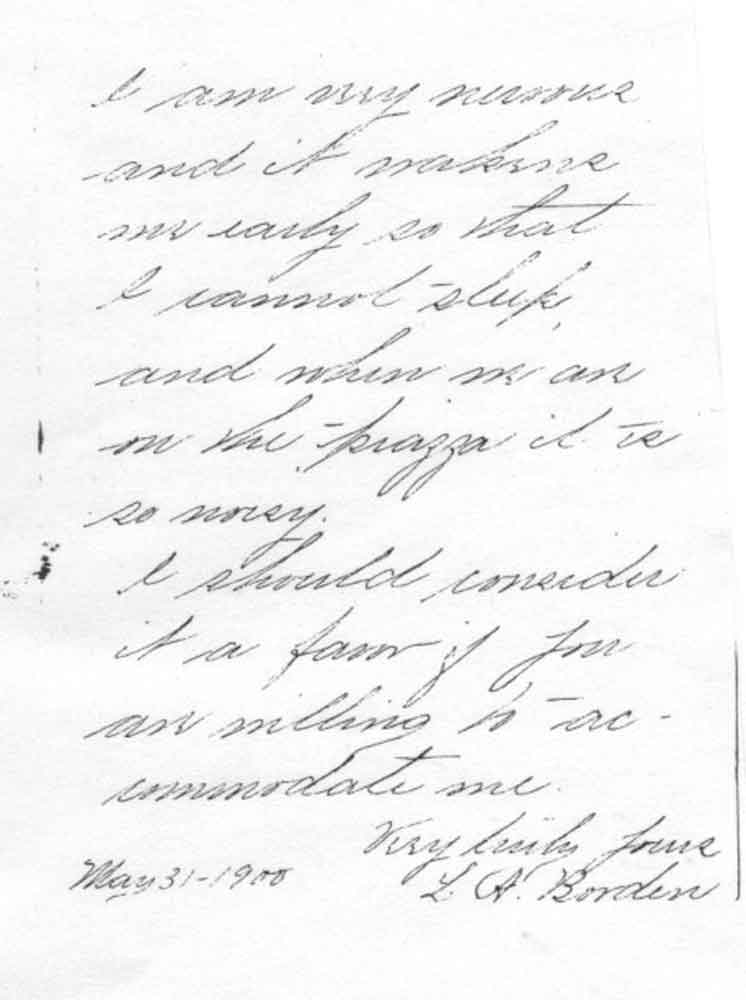 I am very nervous
and it wakens
me early so that
I cannot sleep,
and when we are
on the piazza it is
so noisy.
I should consider
it a favor if you
are willing to ac-
commodate me.
Very truly yours
May 31-1900 L. A. Borden